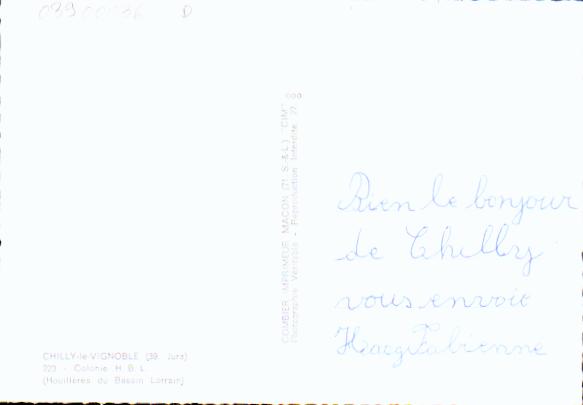 03900036 D
COMBIER IMPRIMEUR MACON (71 S.-&-L.) "CIM"
Photographie Véritable - Reproduction Interdite
Bien le bonjour
de Chilly
vous envoie
Haeg Fabienne
CHILLY-le-VIGNOBLE (39. Jura)
223 - Colonie H. B. L.
(Houillères du Bassin Lorrain)